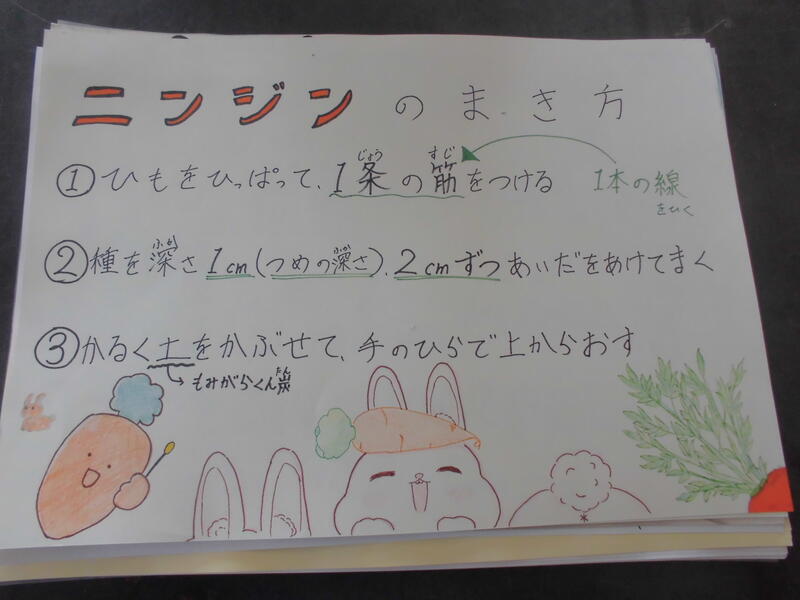 ニンジンのまき方
①ひもをひっぱって、1条の筋をつける
じょう すじ
1本の線
をひく
②種を深さ1cm(つめの深さ)、2cmずつあいだをあけてまく
ふか ふか
③かるく土をかぶせて、手のひらで上からおす
もみがらくん炭
たん